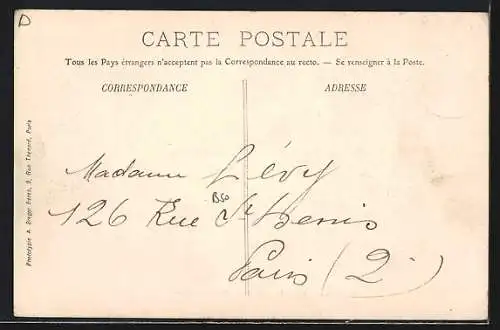 D
CARTE POSTALE
Tous les Pays étrangers n'acceptent pas la Correspondance au recto. — Se renseigner à la Poste.
CORRESPONDANCE
ADRESSE
Madame Lévy
B50
126 Rue St Denis
Paris (2)
Phototypie A. Breger Frères, 9, Rue Thénard, Paris